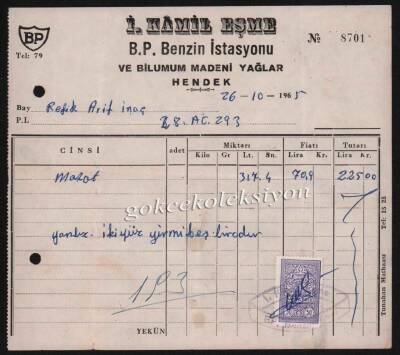 BP
Tel: 79
İ. KÂMİL EŞME
B.P. Benzin İstasyonu
VE BİLUMUM MADENİ YAĞLAR
HENDEK
№ 8701
26-10-1965
Bay Refik Arif inaç
P.L. 28. AC. 293
CİNSİ adet Miktarı Fiatı Tutarı
Kilo Gr Lt. Sn. Lira Kr. Lira Kr.
Mazot 317.4 70,9 225 00
gokcekoleksiyon
yanlız. ikiyüz yirmibeş liradır
YEKÛN
Tunahan Matbaası Tel: 15 25